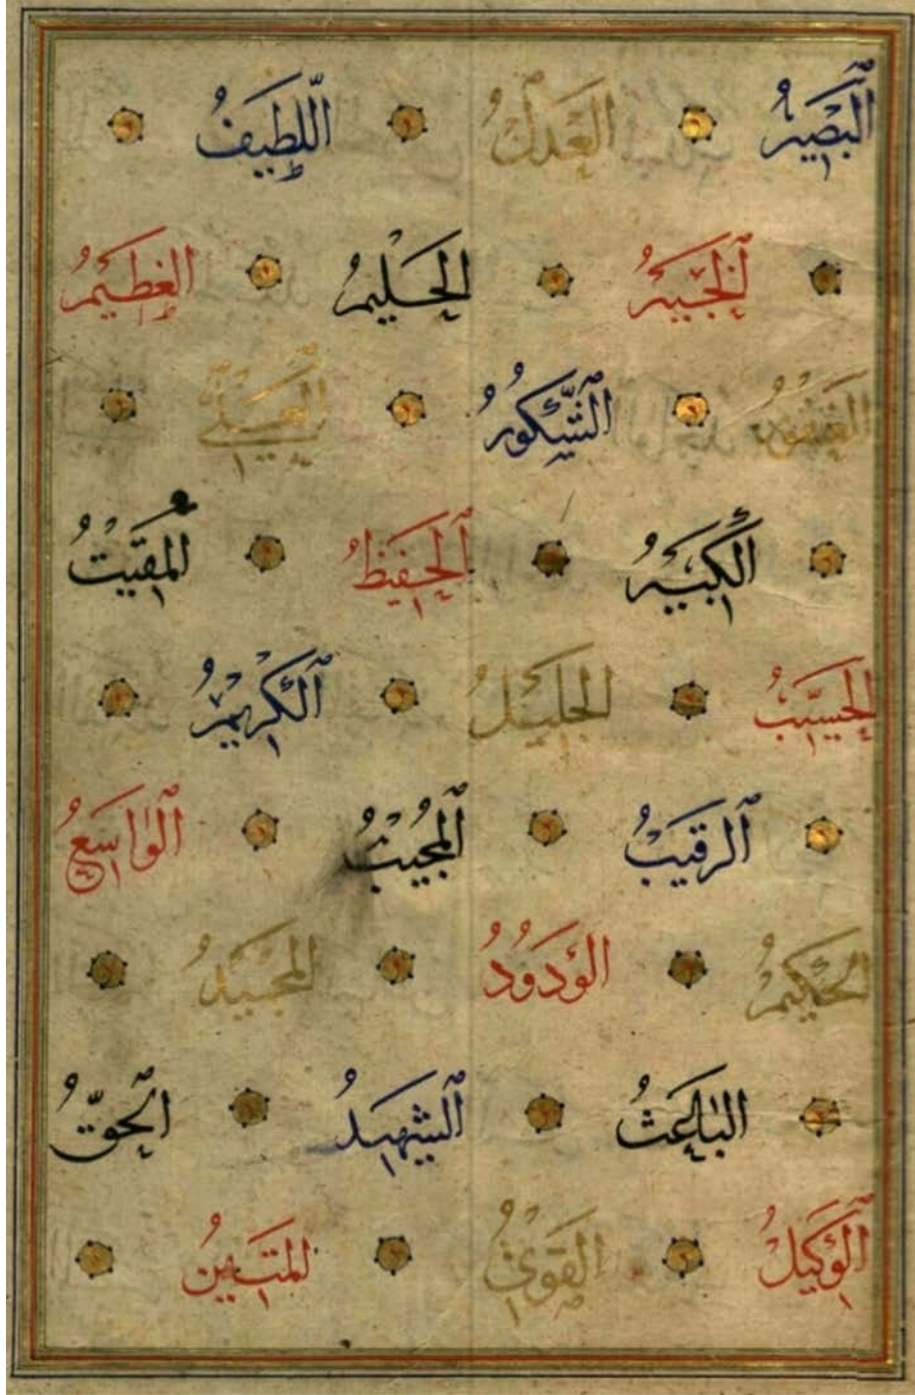 ٱلْبَصِيرُ ٱلْعَدْلُ ٱللَّطِيفُ
ٱلْخَبِيرُ ٱلْحَلِيمُ ٱلْعَظِيمُ
ٱلْغَفُورُ ٱلشَّكُورُ ٱلْعَلِيُّ
ٱلْكَبِيرُ ٱلْحَفِيظُ ٱلْمُقِيتُ
ٱلْحَسِيبُ ٱلْجَلِيلُ ٱلْكَرِيمُ
ٱلرَّقِيبُ ٱلْمُجِيبُ ٱلْوَاسِعُ
ٱلْحَكِيمُ ٱلْوَدُودُ ٱلْمَجِيدُ
ٱلْبَاعِثُ ٱلشَّهِيدُ ٱلْحَقُّ
ٱلْوَكِيلُ ٱلْقَوِيُّ ٱلْمَتِينُ